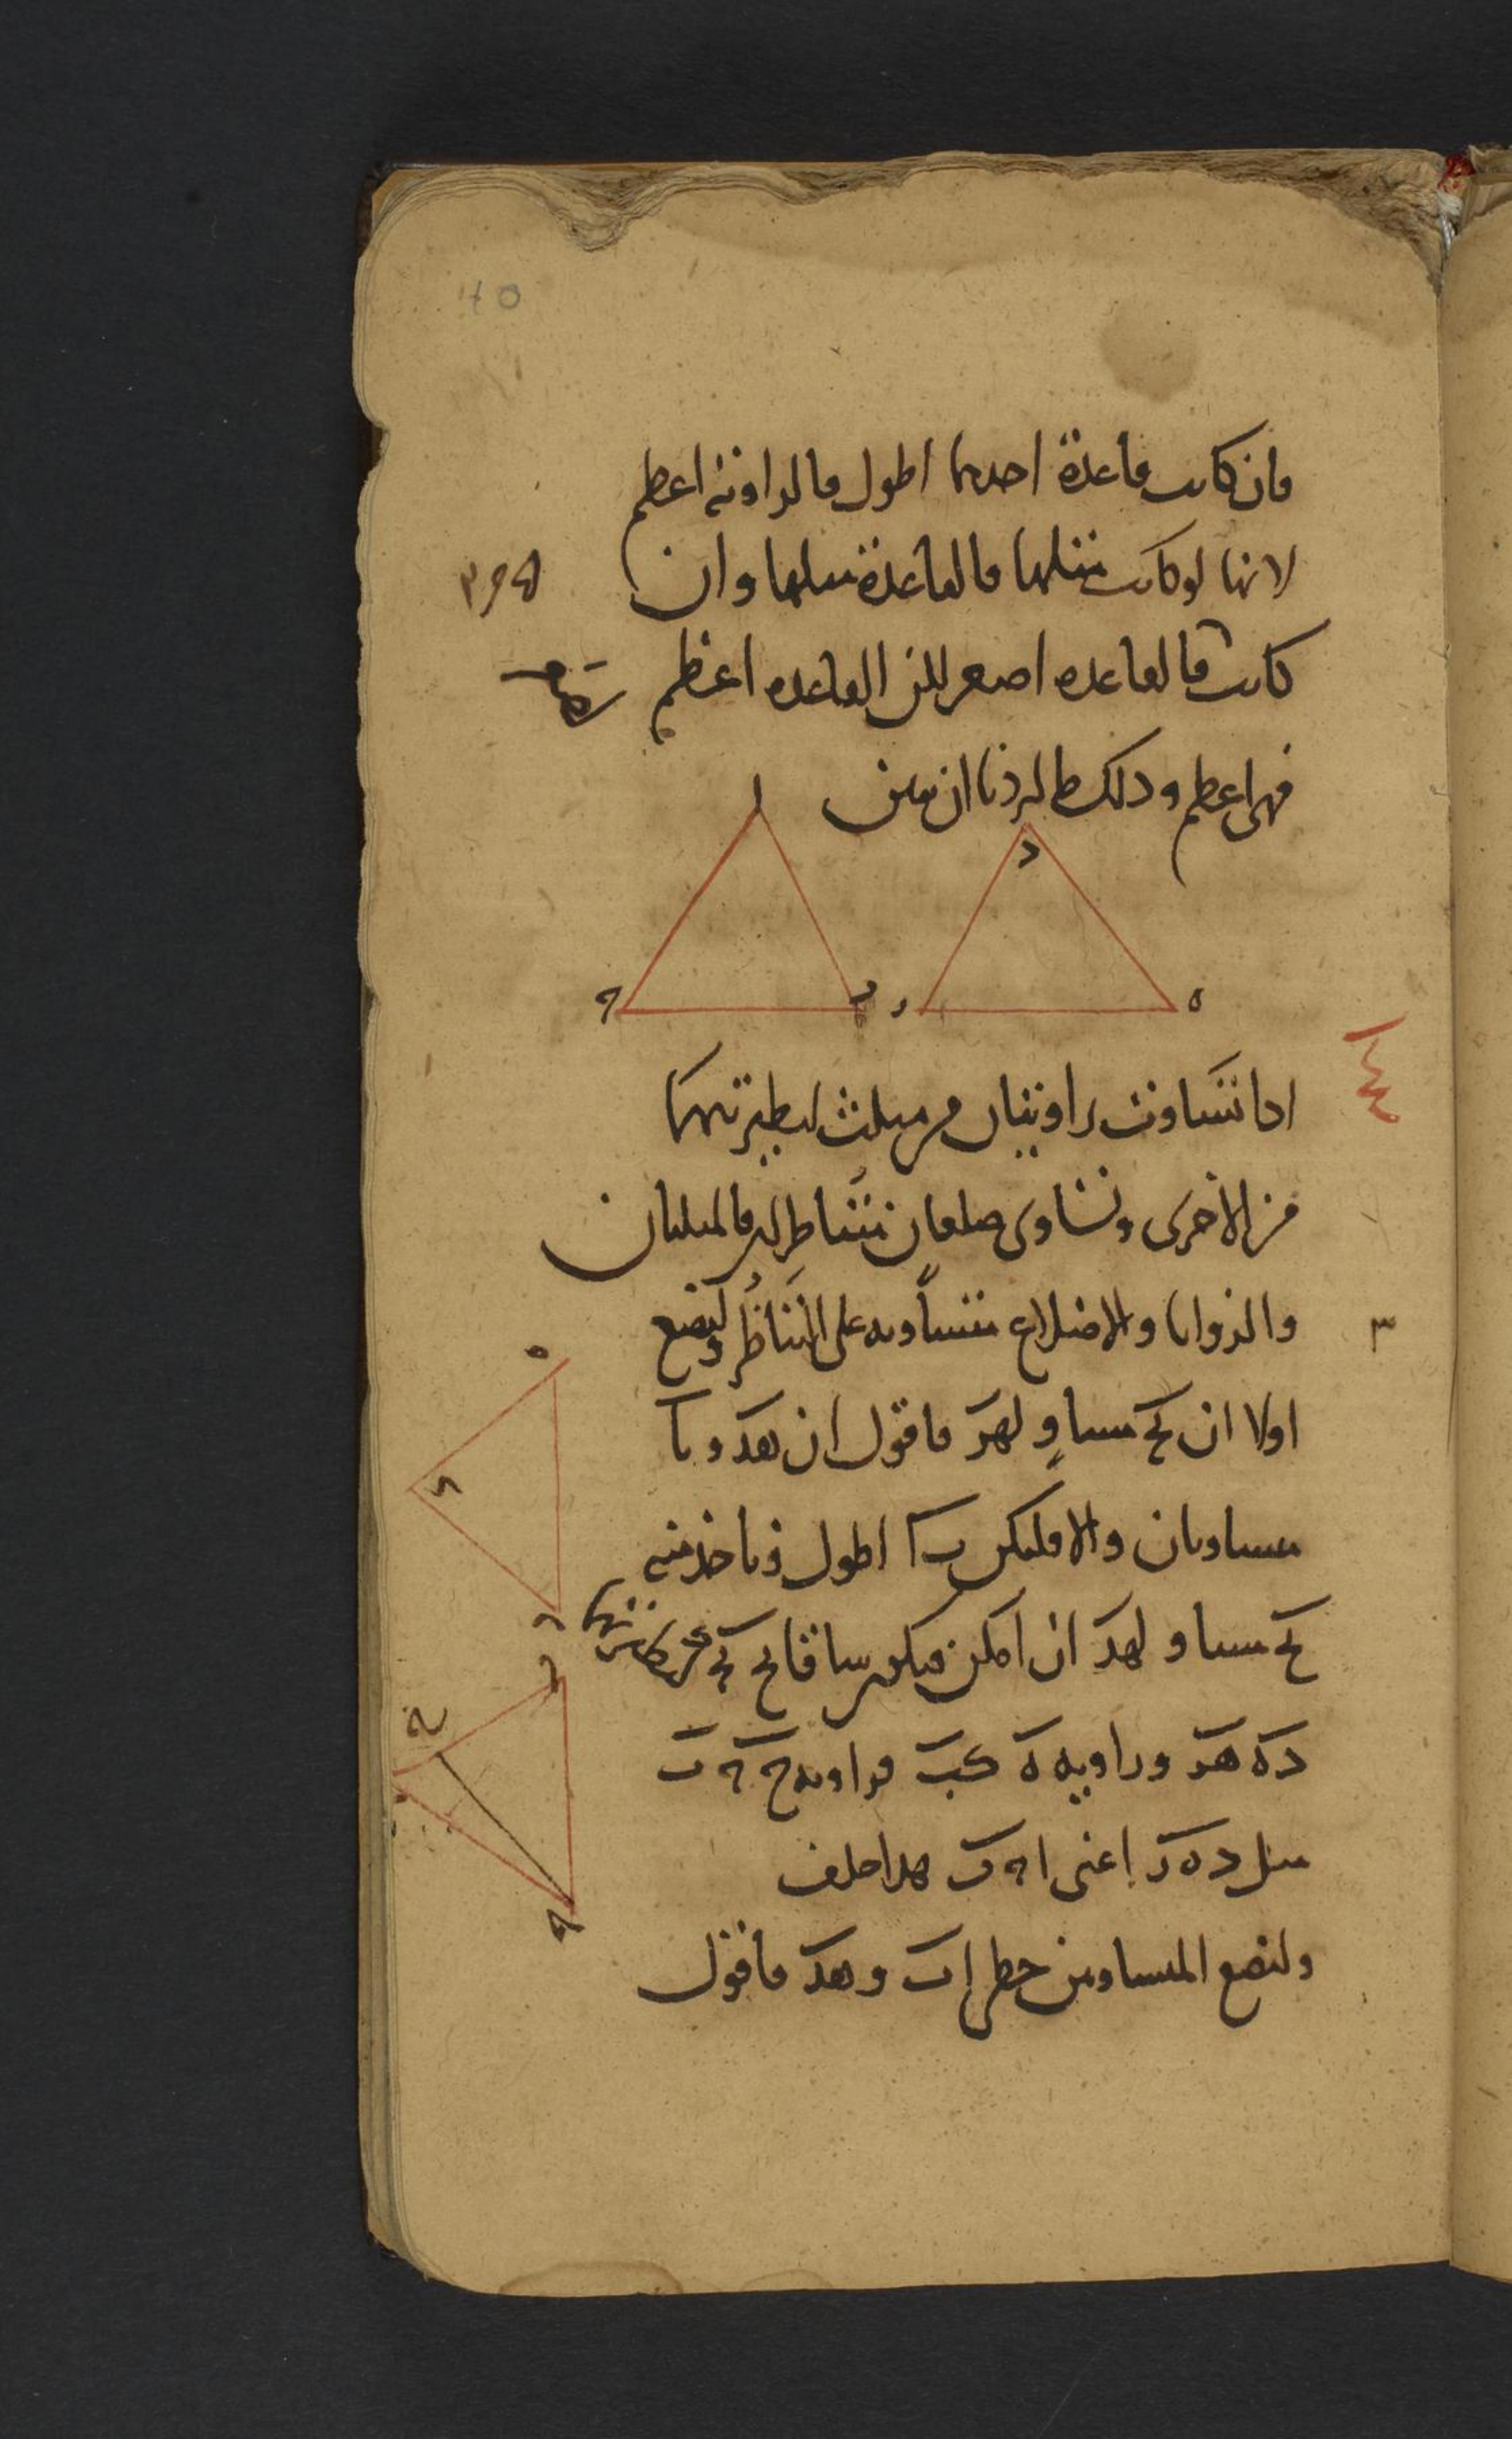 فان كانت قاعدة احدهما اطول فالزاوية اعظم
لانها لو كانت مثلها فالقاعدة مثلها وان
كانت فالقاعده اصغر لكن القاعده اعظم
فهى اعظم وذلك ما اردنا ان نبين
ا
د
ح
ب
ر
ه
اذا تساوت زاويتان من مثلث لنظيرتهما
من الاخرى وتساوى ضلعان متناظران فالمثلثان
والزوايا والاضلاع متساويه على التناظر ولنضع
٣
اولا ان بح مساو لهر فاقول ان هد و با
متساويان والا فليكن با اطول وناخذ منه
بح مساو لهد ان امكن فيكون ساقا بح بح
ده هر وزاويه ه كب فزاويه ح ح ب
مثل د ه ر اعنى ا ح ب هذا خلف
ولنضع المتساويين خطى اب و هد فاقول
ه
د
ر
ب
ح
ا
ح